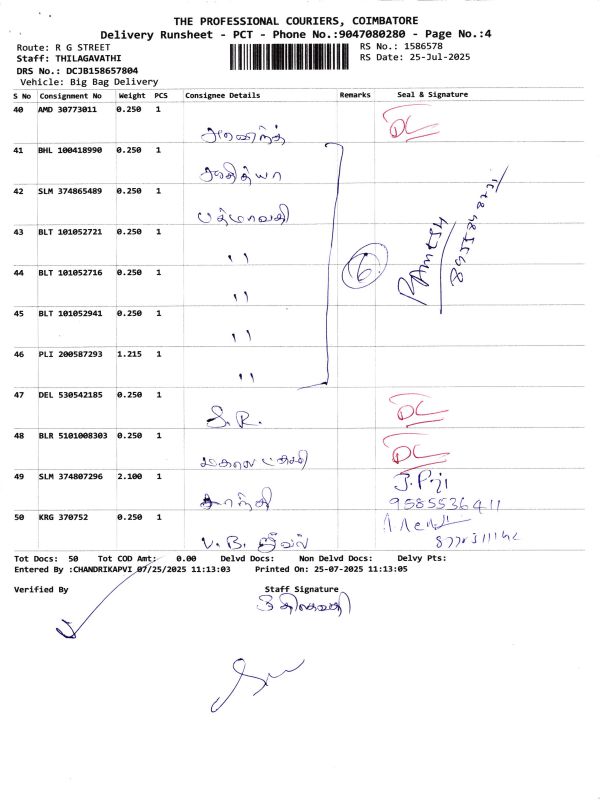 THE PROFESSIONAL COURIERS, COIMBATORE
Delivery Runsheet - PCT - Phone No.:9047080280 - Page No.:4
Route: R G STREET
RS No.: 1586578
Staff: THILAGAVATHI
RS Date: 25-Jul-2025
DRS No.: DCJB158657804
Vehicle: Big Bag Delivery
S No Consignment No Weight PCS Consignee Details Remarks Seal & Signature
40 AMD 30773011 0.250 1
DC
41 BHL 100418990 0.250 1
42 SLM 374865489 0.250 1
பத்மாவதி
43 BLT 101052721 0.250 1
"
44 BLT 101052716 0.250 1
"
6
RAMESH
45 BLT 101052941 0.250 1
"
46 PLI 200587293 1.215 1
"
47 DEL 530542185 0.250 1
S.R.
DC
48 BLR 5101008303 0.250 1
DC
49 SLM 374807296 2.100 1
காந்தி
9585536411
50 KRG 370752 0.250 1
V. B.
Tot Docs: 50 Tot COD Amt: 0.00 Delvd Docs: Non Delvd Docs: Delvy Pts:
Entered By :CHANDRIKAPVI 07/25/2025 11:13:03 Printed On: 25-07-2025 11:13:05
Verified By
Staff Signature